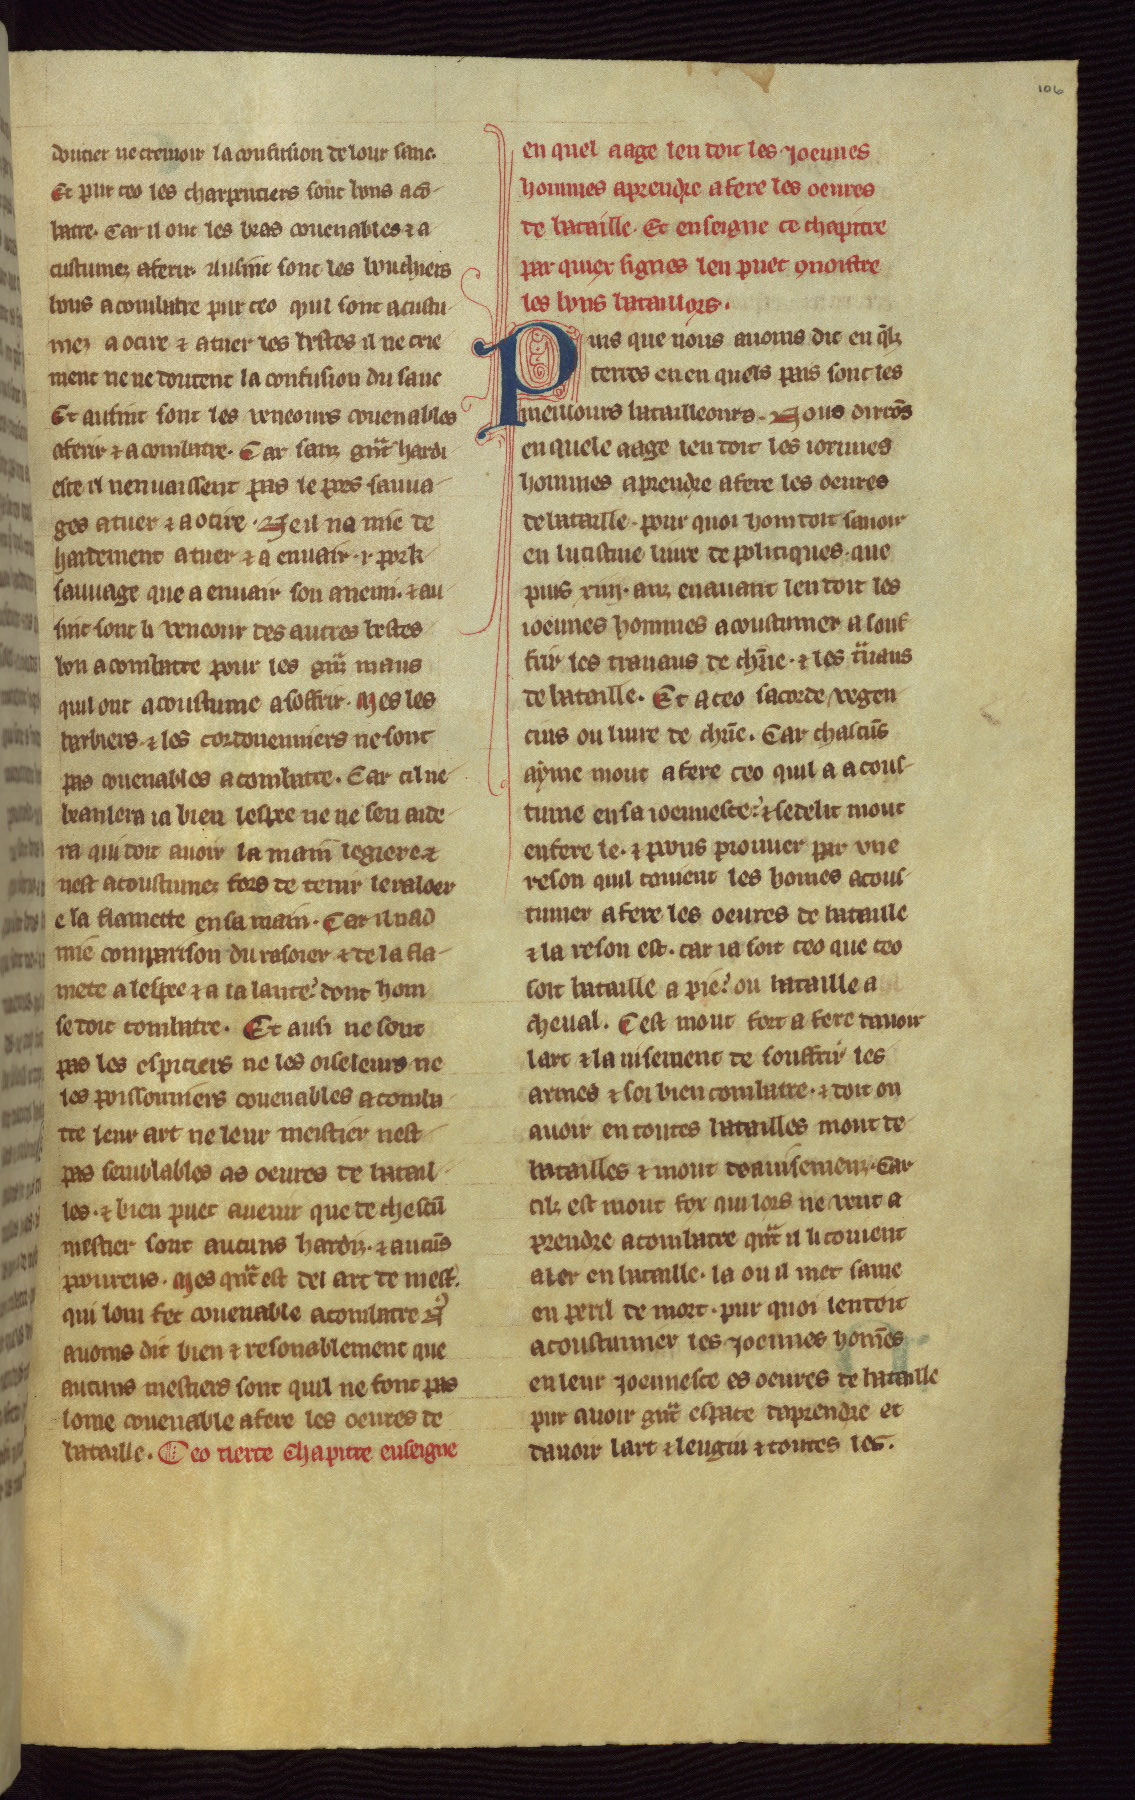 106
doutier ne cremoir la confusion de lour sanc.
Et pur ceo les charpentiers sont bons a cō-
batre. Car il ont les bras couenables ⁊ a
custumez a ferir. Ausint sont les bouchiers
bons a combatre pur ceo quil sont acustu-
mez a ocire ⁊ a tuer les bestes il ne crie
ment ne ne doutent la confusion du sanc
Et ausint sont les veneours couenables
a ferir ⁊ a combatre. Car sanz gūt hardi
esce il nenuaissent pas le pors sauua-
ges a tuer ⁊ a ocire. Ne il na mie de
hardement a tuer ⁊ a enuair .i. pork
sauuage que a enuair son anemi. ⁊ au
sint sont li veneour des autres bestes
bon a combatre pour les gūt maus
quil ont acoustume a soffrir. Mes les
barbiers ⁊ les cordouenniers ne sont
pas couenables a combatre. Car cil ne
branlera ia bien lespee ne ne sen aide-
ra qui doit auoir la main legiere ⁊
nest acoustumez fors de tenir le rasoer
e la flamette en sa main. Car il nad
mie comparison du rasoier ⁊ de la fla-
mete a lespee ⁊ a la lance. dont hom
se doit combatre. Et ausi ne sont
pas les espiciers ne les oiseleurs ne
les poissonniers couenables a comba-
tre leur art ne leur meistier nest
pas semblables as oeures de batail-
les. ⁊ bien puet auenir que de chescū
mestier sont aucuns hardiz. ⁊ aucūs
pourens. Mes qūt est del art de mest.
qui lom fet couenable a combatre n9
auoms dit bien ⁊ resonablement que
aucuns mestiers sont quil ne font pas
lome couenable a fere les oeures de
bataille. Ceo tierce chapitre enseigne
en quel aage len doit les Joeunes
hommes aprendre a fere les oeures
de bataille. Et enseigne ce chapitre
par quiex signes len puet 9noistre
les bons batailleors.
Puis que nous auoms dit en q̄lz
terres eu en quels pais sont les
meillours batailleours. Nous diroms
en quele aage len doit les ioeunes
hommes aprendre a fere les oeures
de bataille. pour quoi hom doit sauoir
en lutisme liure de politiques. que
puis xiiij. anz en auant len doit les
ioeunes hommes acoustumer a souf
frir les trauaus de chr̄ie. ⁊ les t̄uaus
de bataille. Et a ceo sacorde vegen
cius ou liure de chr̄ie. Car chascūs
ayme mout a fere ceo quil a a cous-
tume en sa ioeunesce. ⁊ se delit mout
en fere le. ⁊ poons prouuer par vne
reson quil couient les homes acous-
tumer a fere les oeures de bataille
⁊ la reson est. car ia soit ceo que ceo
soit bataille a pie. ou bataille a
cheual. Cest mout fort a fere dauoir
lart ⁊ la uisement de souffrir les
armes ⁊ soi bien combatre. ⁊ doit on
auoir en toutes batailles mout de
batailles ⁊ mout dauisemenz. Car
cilz est mout fox qui lors ne veut a
prendre a combatre qūt il li couient
aler en bataille. la ou il met sa uie
en peril de mort. pur quoi len doit
acoustumer les Joeunes homēs
en leur Joeunesce es oeures de bataille
pur auoir gūt espace daprendre et
dauoir lart ⁊ lengin ⁊ toutes les.